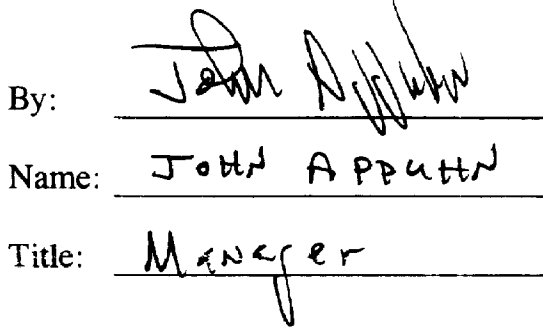 By: John Appuhn
Name: JOHN APPUHN
Title: Manager